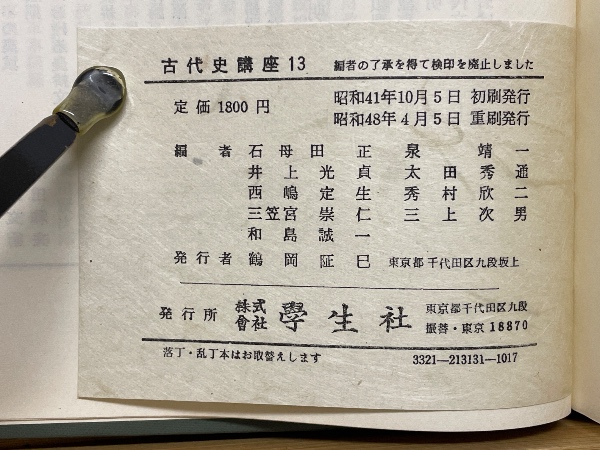 古代史講座13 編者の了承を得て検印を廃止しました
定価 1800円 昭和41年10月5日 初刷発行
昭和48年4月5日 重刷発行
編者 石母田正 泉靖一
井上光貞 太田秀通
西嶋定生 秀村欣二
三笠宮崇仁 三上次男
和島誠一
発行者 鶴岡阷巳 東京都千代田区九段坂上
発行所 株式會社 學生社 東京都千代田区九段
振替・東京 18870
落丁・乱丁本はお取替えします 3321-213131-1017